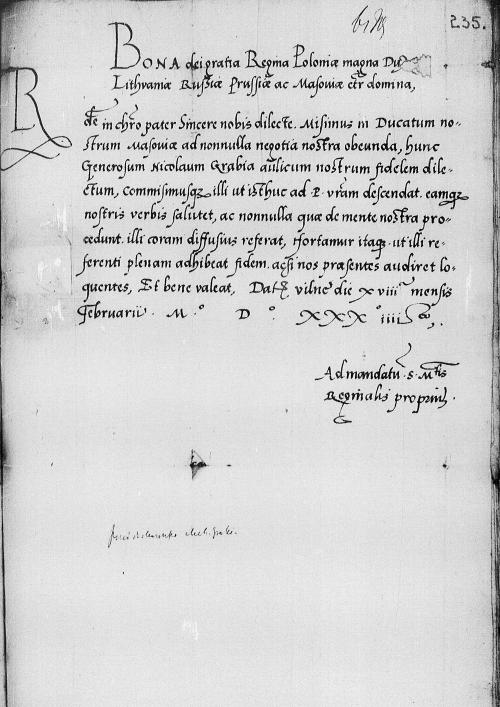 235.
BONA dei gratia Regina Poloniæ magna Du
Lithvaniæ Russiæ Prussiæ ac Masoviæ etc domina,
Rde in chro pater sincere nobis dilecte. Misimus in Ducatum no-
strum Masoviæ ad nonnulla negotia nostra obeunda, hunc
Generosum Nicolaum Grabia aulicum nostrum fidelem dile-
ctum, commisimusq illi ut isthuc ad P. vram descendat. eamq
nostris verbis salutet, ac nonnulla quæ de mente nostra pro-
cedunt. illi coram diffusius referat, Hortamur itaq. ut illi re-
ferenti plenam adhibeat fidem. acsi nos præsentes audiret lo-
quentes, Et bene valeat, Dat vilne die xviii mensis
Februarii. M.° D°. XXXiiii etc.
Ad mandatu S. Mtis
Reginalis propriu.